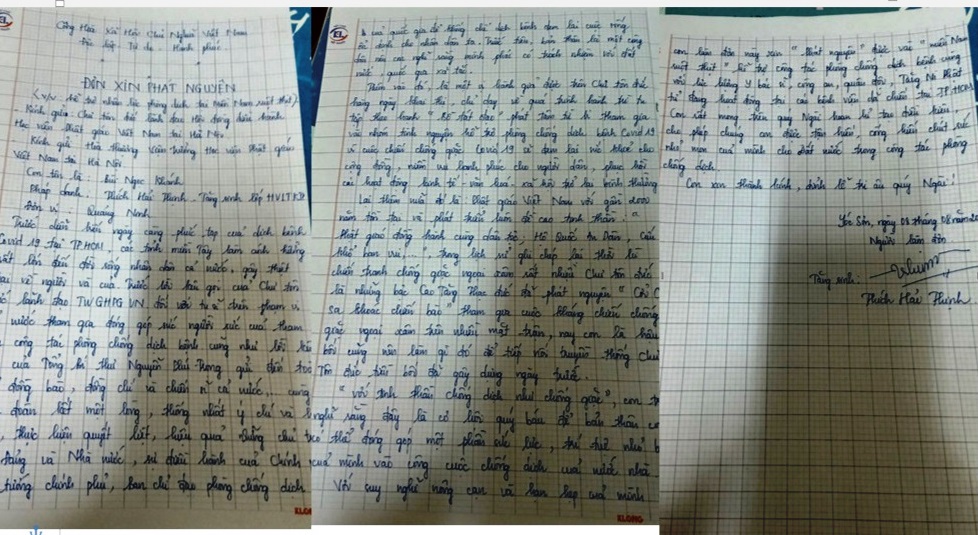 Cộng Hòa Xã Hội Chủ Nghĩa Việt Nam
Độc lập Tự do Hạnh phúc
ĐƠN XIN PHÁT NGUYỆN
Kính gửi: Chư tôn
Học viện Phật giáo Việt Nam tại Hà Nội
Kính gửi Hòa thượng Viện trưởng Học viện Phật giáo
Việt Nam tại Hà Nội
Con tên là: Bùi Ngọc Khánh
Pháp danh: Thích Hải Thịnh. Tăng sinh lớp
Đơn vị: Quảng Ninh
Trước diễn biến ngày càng phức tạp của dịch bệnh
Covid 19 tại TP.HCM các tỉnh miền Tây làm ảnh hưởng
lớn đến đời sống nhân dân cả nước, gây thiệt
về người và của. Trước lời kêu gọi của Chư tôn
lãnh đạo TWGHPGVN đối với tu sĩ trên phạm vi
nước tham gia đóng góp sức người sức của tham
công tác phòng chống dịch bệnh cũng như lời kêu
của Tổng Bí thư Nguyễn Phú Trọng gửi đến toàn
đồng bào, đồng chí và chiến sĩ cả nước... cùng
đoàn kết một lòng, thống nhất ý chí và
thực hiện quyết liệt, hiệu quả những chủ
Đảng và Nhà nước, sự điều hành của Chính
tướng chính phủ, ban chỉ đạo phòng chống dịch
quốc gia để đẩy dịch bệnh đem lại cuộc sống
cho nhân dân ta. Trước tiên, bản thân là một công
dân của nghĩ rằng mình phải có trách nhiệm với đất
nước, quốc gia xã tắc.
Thêm vào đó, là một vị hành giả được trên Chư tôn đức
hàng ngày khai thị, chỉ dạy về quá trình hành trì tu
tập theo hạnh "Bồ tát đạo" phát tâm từ bi tham gia
vào nhóm tình nguyện hỗ trợ phòng chống dịch bệnh Covid 19
vì cuộc chiến chống giặc Covid 19 sẽ đem lại sức khỏe cho
cộng đồng, niềm vui hạnh phúc cho người dân, phục hồi
các hoạt động kinh tế văn hóa xã hội trở lại bình thường
Lại thêm nữa đó là Phật giáo Việt Nam với gần 2000
năm tồn tại và phát triển luôn đề cao tinh thần: "
Phật giáo đồng hành cùng dân tộc, Hộ Quốc An Dân, Cứu
khổ ban vui,...", trong lịch sử ghi chép lại thời kì
chiến tranh chống giặc ngoại xâm rất nhiều Chư tôn đức
là những bậc Cao Tăng Thạc đức đã phát nguyện "Cởi
sa khoác chiến bào" tham gia cuộc kháng chiến chống
giặc ngoại xâm trên nhiều mặt trận, nay con là hậu
bối cũng nên làm gì đó để tiếp nối truyền thống Chư
Tôn đức tiền bối đã gây dựng ngày trước.
"với tinh thần chống dịch như chống giặc", con
nghĩ rằng đây là cơ hội quý báu để bản thân
có thể đóng góp một phần sức lực, trí tuệ nhỏ
của mình vào công cuộc chống dịch của nước nhà
Với suy nghĩ nông cạn và hạn hẹp của mình
con làm đơn này xin "phát nguyện" được vào "miền Nam
ruột thịt" hỗ trợ công tác phòng chống dịch bệnh cùng
với lực lượng y bác sĩ, công an, quân đội, Tăng Ni Phật
tử đang hoạt động tại các bệnh viện dã chiến tại TP.HCM
Con rất mong trên quý Ngài hoan hỉ tạo điều kiện
cho phép chúng con được thực hiện, cống hiến chút sức
nhỏ mọn của mình cho đất nước trong công tác phòng
chống dịch.
Con xin thành kính, đảnh lễ tri ân quý Ngài!
Sóc Sơn, ngày 08 tháng 08 năm
Người làm đơn
Tăng sinh:
Thích Hải Thịnh
KLONG
KLONG